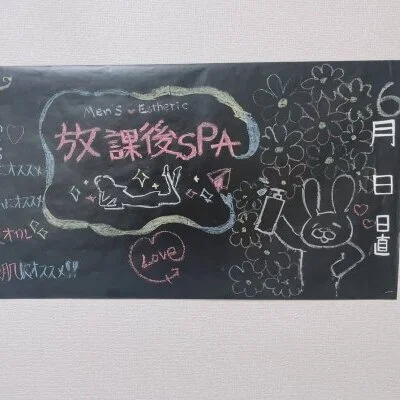 Men's Estheric
放課後SPA
Love
6月 日 日直
にオススメ
にオススメ
オカレ
肌にオススメ!!